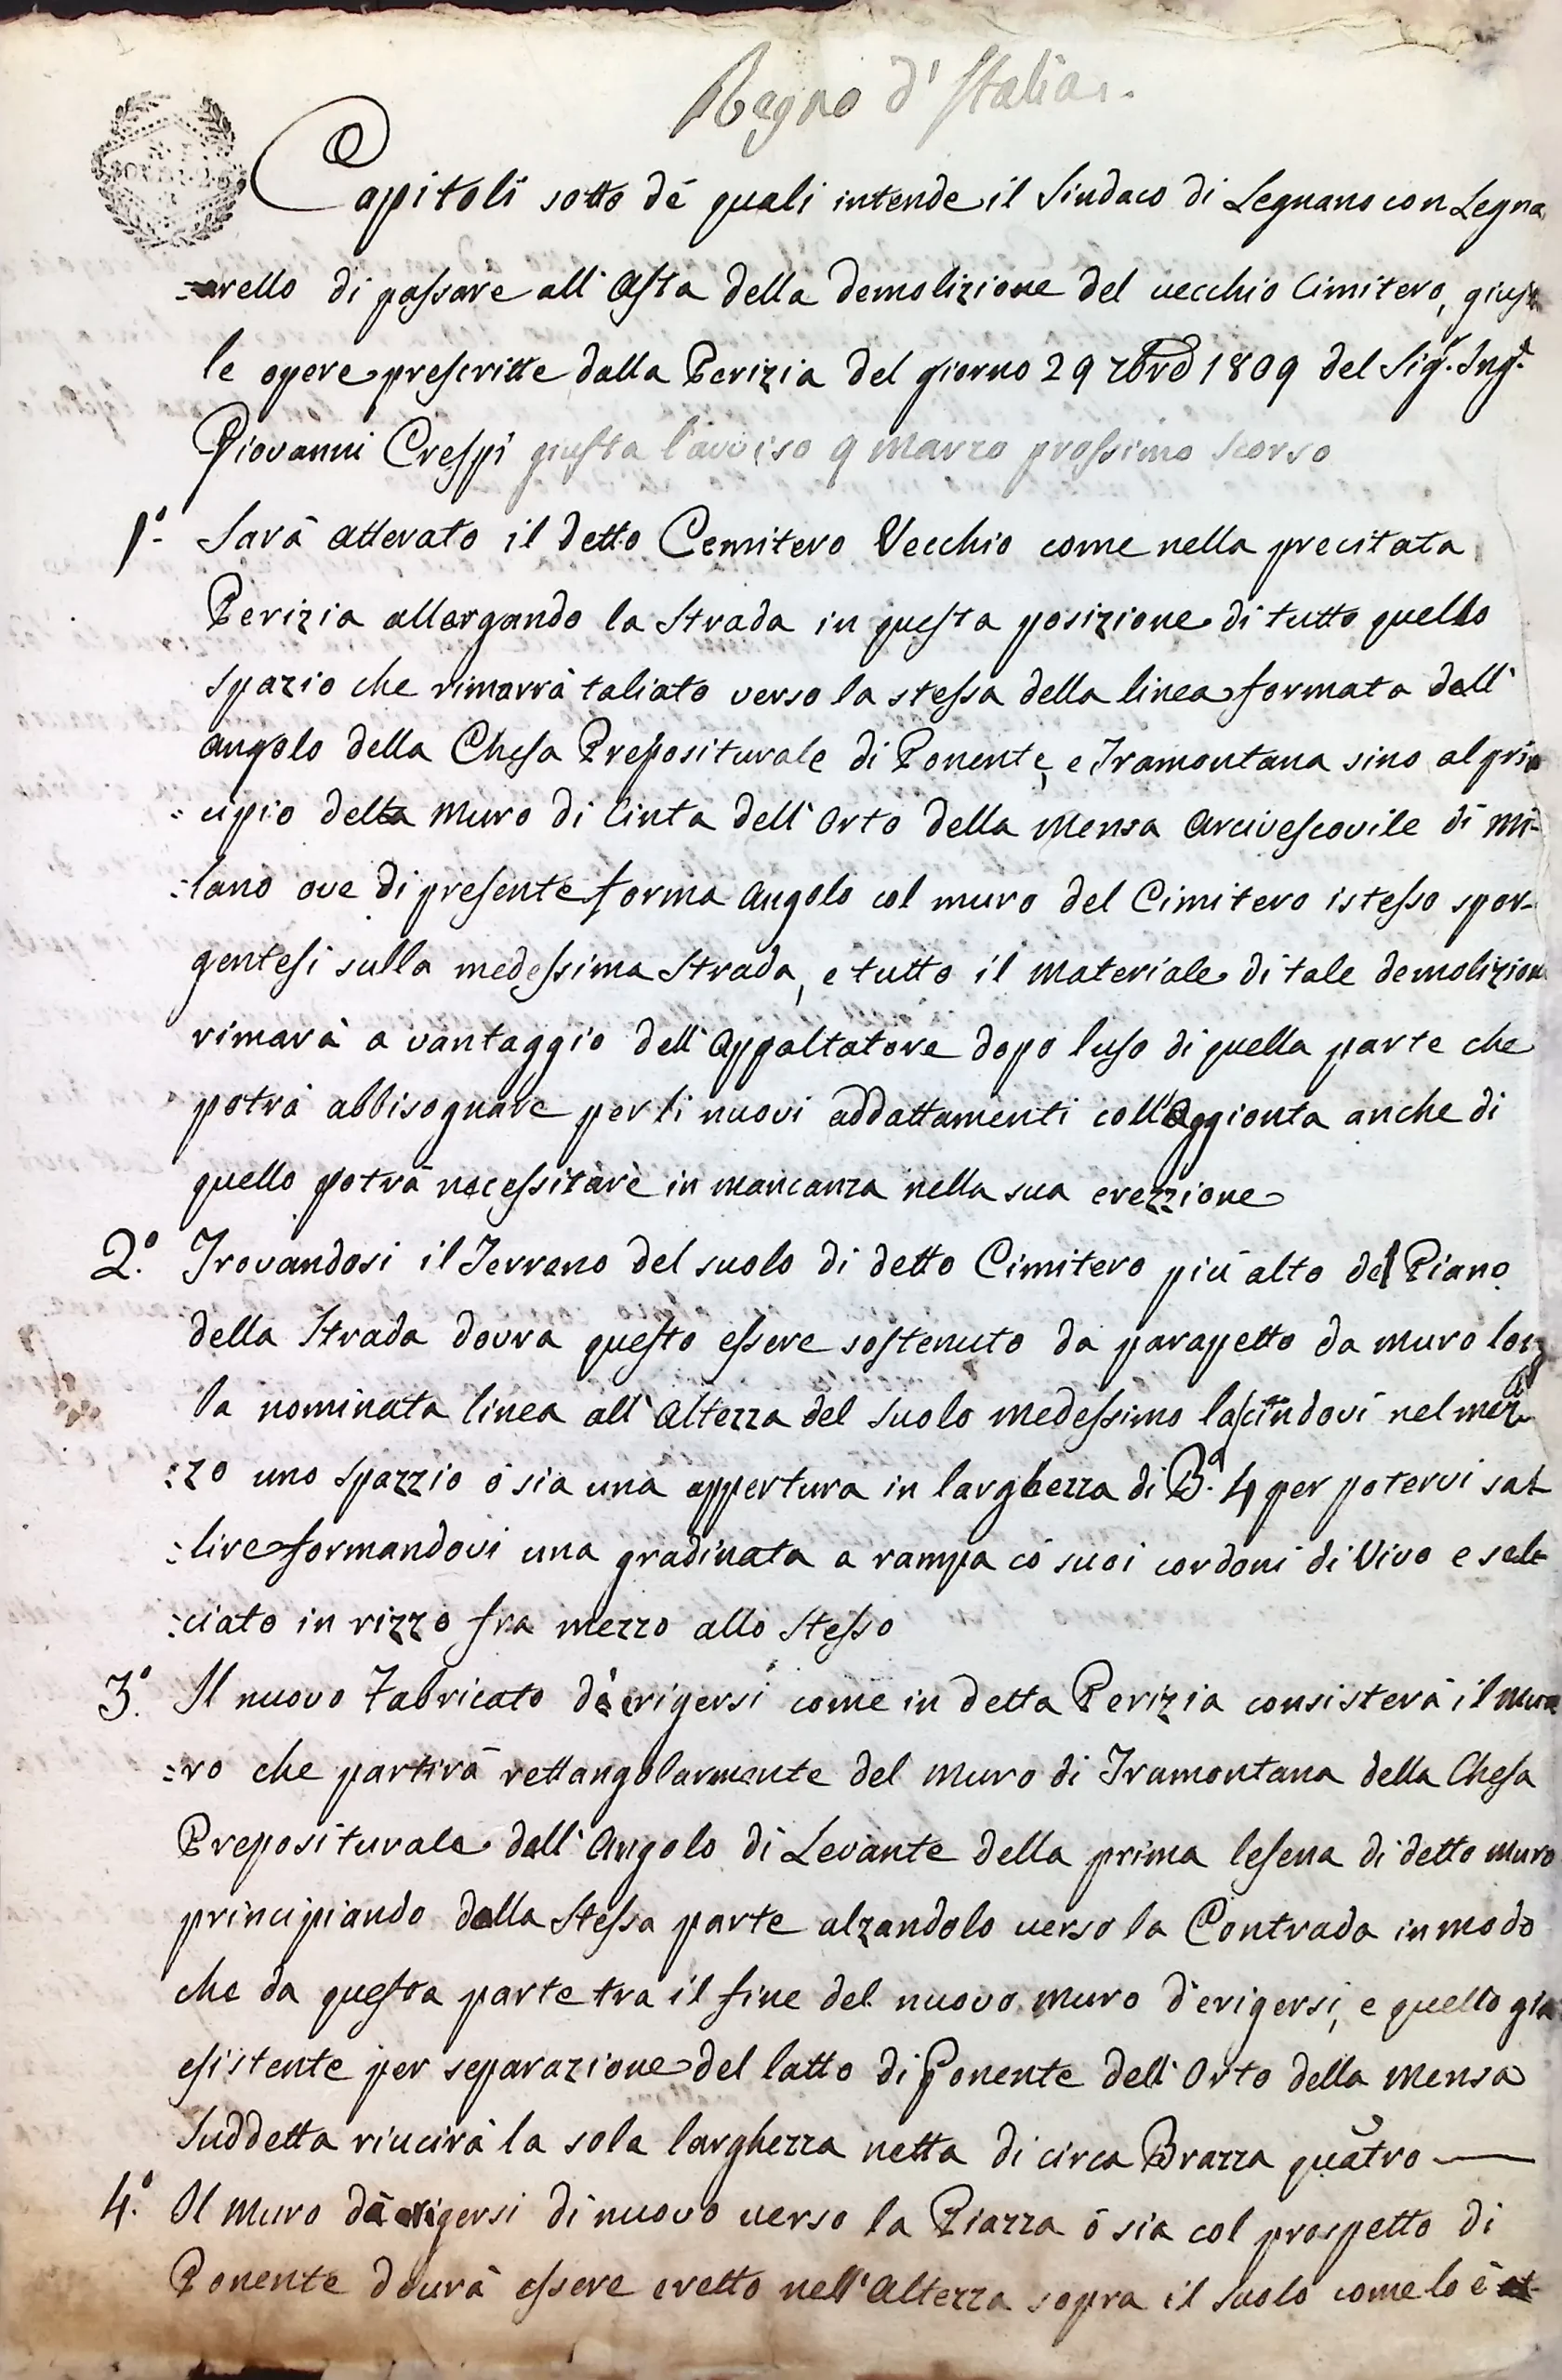 Regno d'Italia.
Capitoli sotto dè quali intende il Sindaco di Legnano con Legna
=rello di passare all'Asta della demolizione del vecchio Cimitero, giusta
le opere prescritte dalla Perizia del giorno 29 xbre 1809 del Sig.r Ing.e
Giovanni Crespi giusta l'avviso 9 Marzo prossimo scorso
1.° Sarà atterato il detto Cemitero Vecchio come nella precitata
Perizia allargando la Strada in questa posizione di tutto quello
spazio che rimarrà taliato verso la stessa della linea formata dall'
angolo della Chesa Prepositurale di Ponente, e Tramontana sino al prin
=cipio della Muro di Cinta dell'Orto della Mensa Arcivescovile di Mi=
=lano ove di presente forma Angolo col muro del Cimitero istesso spor=
gentesi sulla medessima Strada, e tutto il Materiale di tale demolizione
rimarà a vantaggio dell'Appaltatore dopo luso di quella parte che
potrà abbisognare per li nuovi addattamenti coll'Aggionta anche di
quello potrà necessitare in mancanza nella sua erezzione
2.° Trovandosi il Terreno del suolo di detto Cimitero più alto del Piano
della Strada dovra questo essere sostenuto da parapetto da Muro long
la nominata linea all'Altezza del Suolo medessimo lasciandovi nel mez
=zo uno spazzio ò sia una appertura in larghezza di B.a 4 per potervi sal
=lire formandovi una gradinata a rampa cò suoi cordoni di Vivo e sel=
=ciato in rizzo fra mezzo allo Stesso
3.° Il nuovo Fabricato dà erigersi come in detta Perizia consisterà il Mu
=ro che partirà rettangolarmente del Muro di Tramontana della Chesa
Prepositurale dall'Angolo di Levante della prima lesena di detto Muro
principiando dalla Stessa parte alzandolo verso la Contrada in modo
che da questa parte tra il fine del nuovo Muro d'erigersi, e quello già
esistente per separazione del latto di Ponente dell'Orto della Mensa
Suddetta riucirà la sola larghezza netta di circa Brazza quatro —
4.° Il Muro dà erigersi di nuovo verso la Piazza ò sia col prospetto di
Ponente dovrà essere eretto nell'Altezza sopra il Suolo come lo è